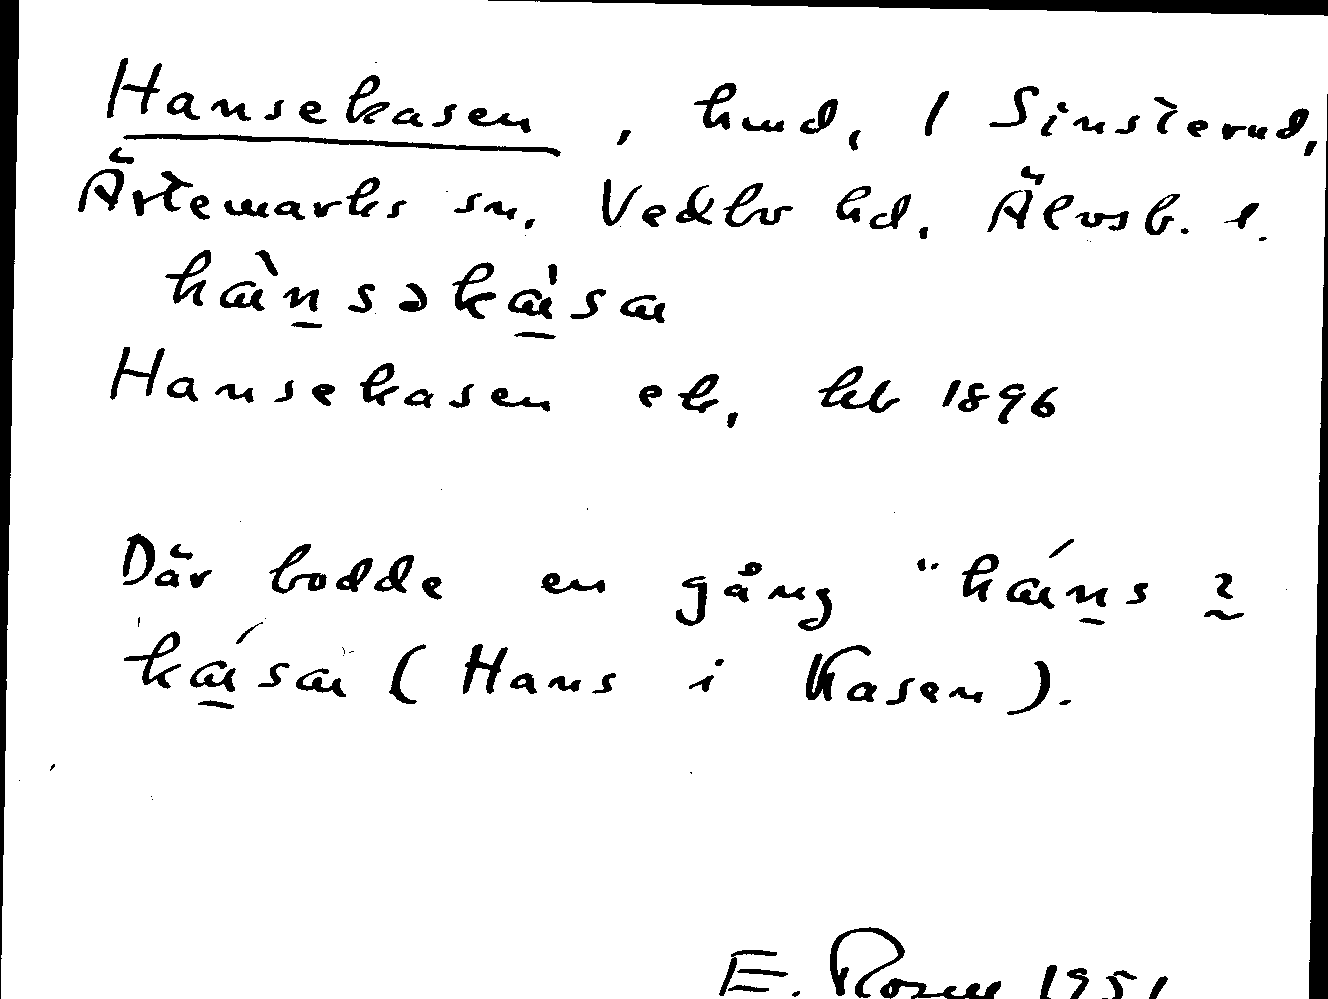 Hansekasen, hmd, / Sinsterud,
Ärtemarks sn. Vedbo hd. Älvsb. l.
hànsəkàsa
Hansekasen ek, kb 1896
Där bodde en gång "háns ɩ
kása (Hans i Kasen).
E. Rosell 1951